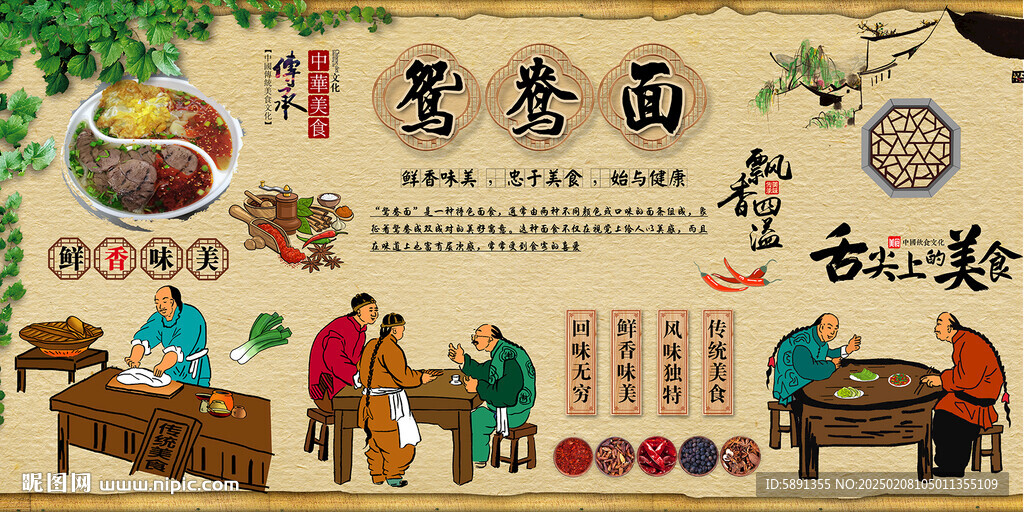 【中國傳統美食文化】
傳承
中華美食
鴛鴦面
鲜香味美，忠于美食，始与健康
“鸳鸯面”是一种特色面食，通常由两种不同颜色或口味的面条组成，象
征着鸳鸯成双成对的美好寓意。这种面食不仅在视觉上给人以美感，而且
在味道上也富有层次感，常常受到食客的喜爱
鲜香味美
飘香四溢
美食
中國飲食文化
舌尖上的美食
回味无穷
鲜香味美
风味独特
传统美食
传统美食
昵图网 www.nipic.com
ID:5891355 NO:20250208105011355109